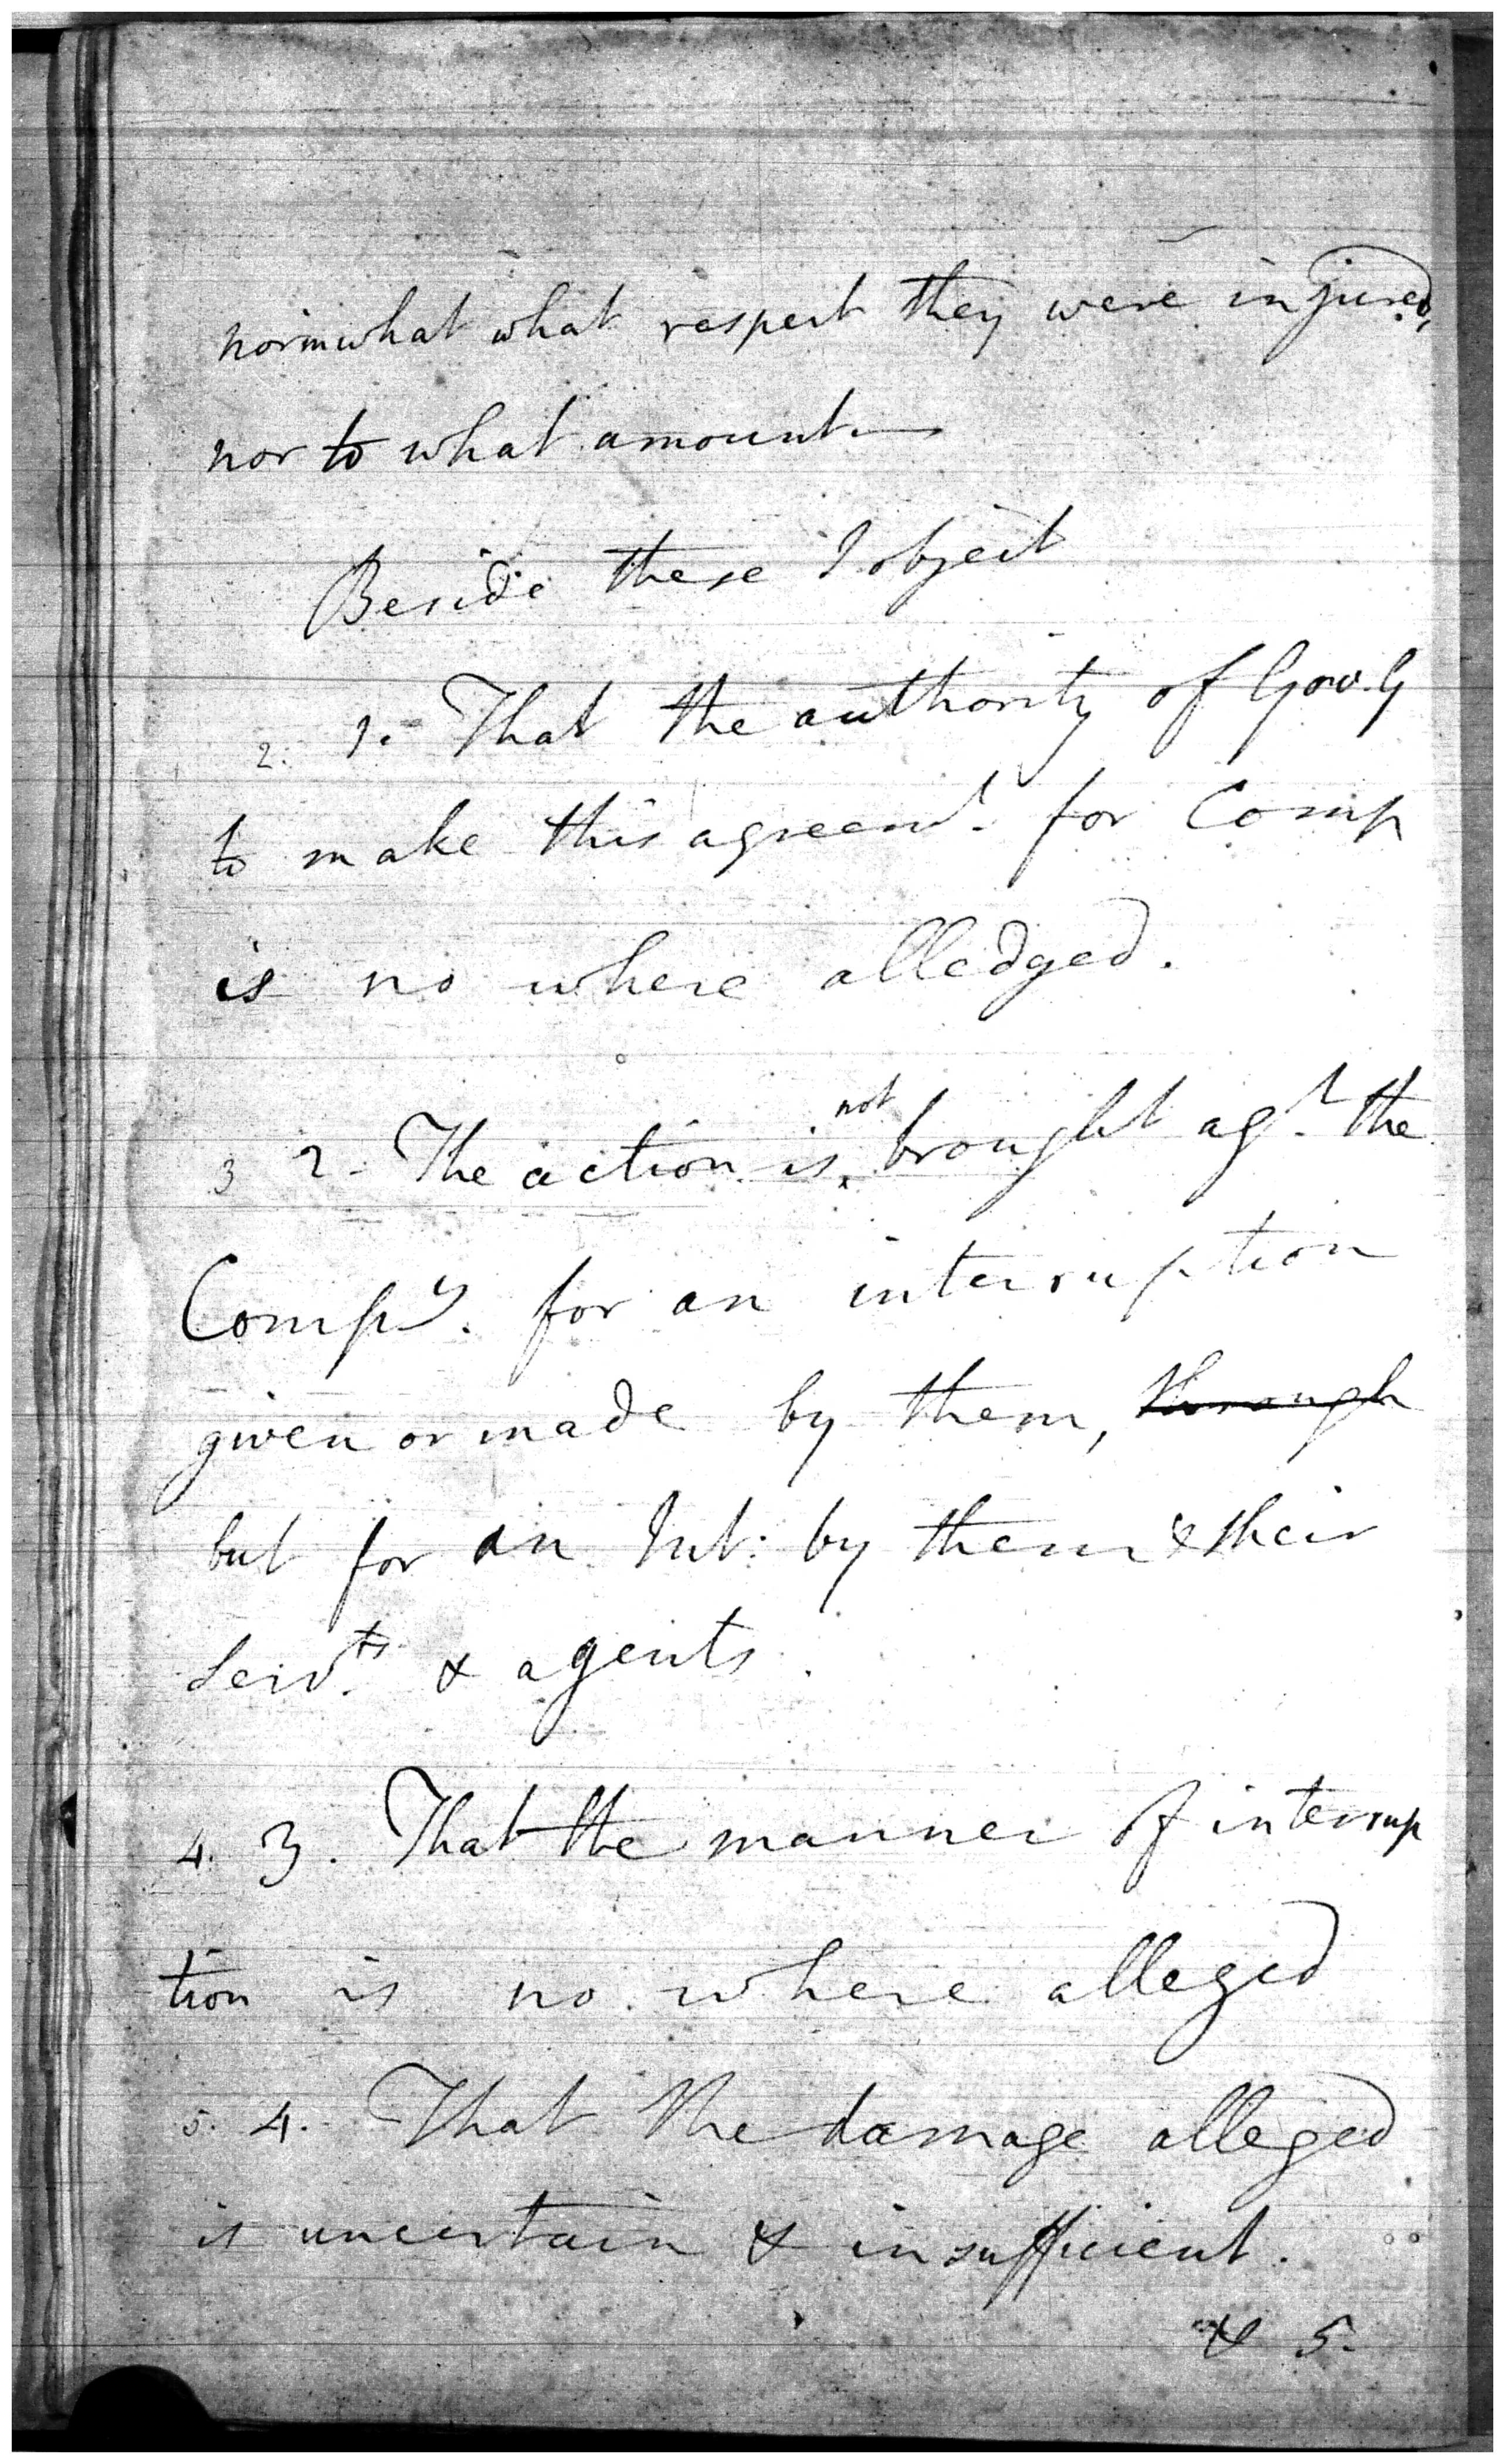 nor in what what respect they were injured,
nor to what amount.—
Beside these I object
2. 1. That the authority of Gov. G
to make this agreemt. for Comp
is no where alledged.
3 2. The action is not brought agt. the
Compy. for an interruption
given or made by them, through
but for an Int: by them & their
Servts. & agents.
4. 3. That the manner of interrup
tion is no where alleged
5. 4. That the damage alleged
is uncertain & insufficient.
& 5.